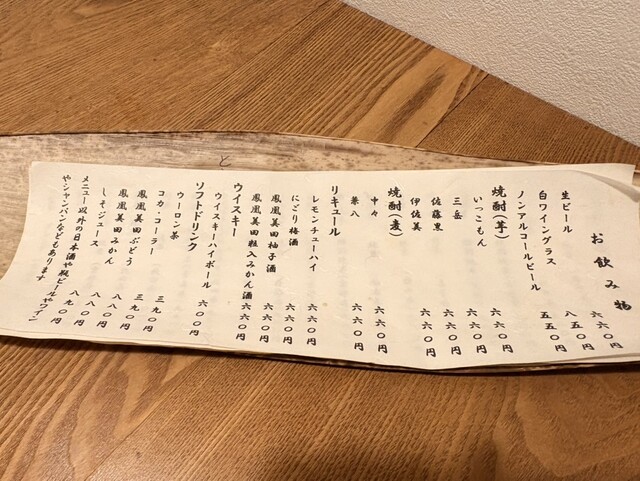 お飲み物
生ビール 六六〇円
白ワイングラス 八五〇円
ノンアルコールビール 五五〇円
焼酎(芋)
いっこもん 六六〇円
三岳 六六〇円
佐藤黒 六六〇円
伊佐美 六六〇円
焼酎(麦)
中々 六六〇円
兼八 六六〇円
リキュール
レモンチューハイ 六六〇円
にごり梅酒 六六〇円
鳳凰美田柚子酒 六六〇円
鳳凰美田粒入みかん酒 六六〇円
ウイスキー
ウイスキーハイボール 六〇〇円
ソフトドリンク
ウーロン茶 三九〇円
コカ・コーラー 三九〇円
鳳凰美田ぶどう 八八〇円
鳳凰美田みかん 八八〇円
しそジュース 八九〇円
メニュー以外の日本酒や瓶ビールやワイン
やシャンパンなどもあります
と